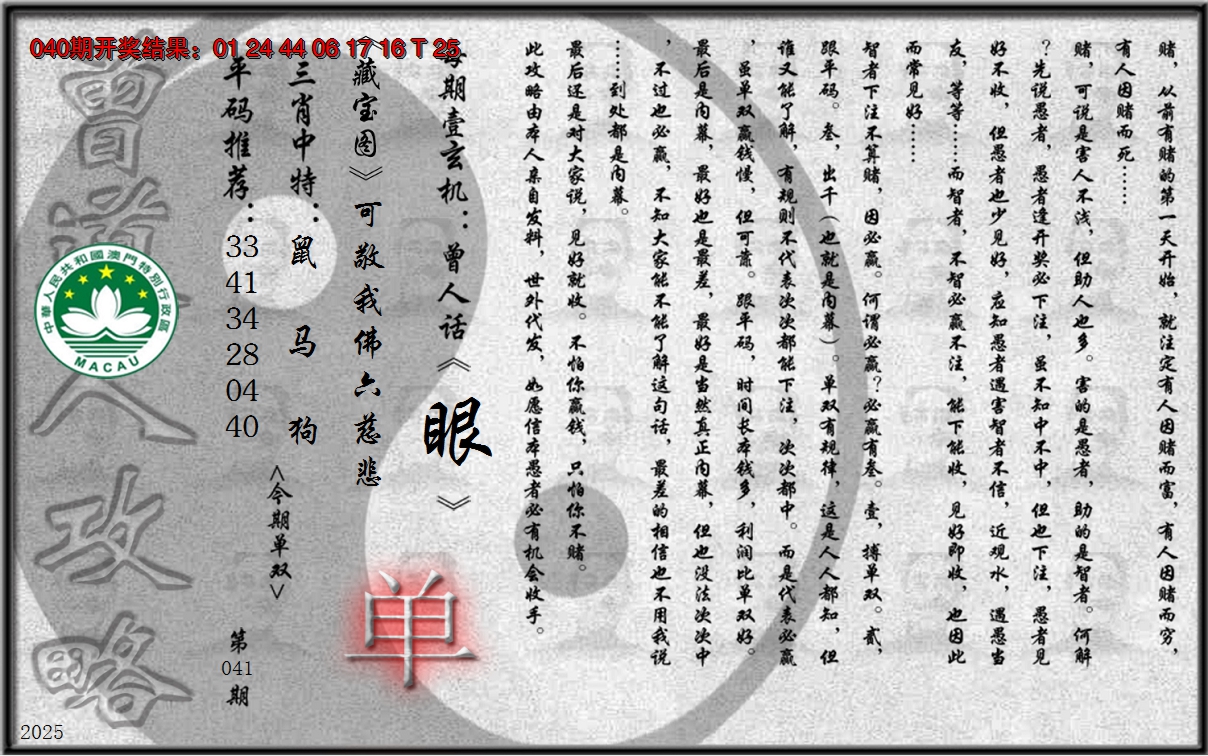 040期开奖结果：01 24 44 06 17 16 T 25
赌，从前有赌的第一天开始，就注定有人因赌而富，有人因赌而穷，
有人因赌而死……
赌，可说是害人不浅，但助人也多。害的是愚者，助的是智者。何解
？先说愚者，愚者逢开奖必下注，虽不知中不中，但也下注，愚者见
好不收，但愚者也少见好，应知愚者遇害智者不信，近观水，遇愚当
友，等等……而智者，不智必赢不注，能下能收，见好即收，也因此
而常见好……
智者下注不算赌，因必赢。何谓必赢？必赢有叁。壹，搏单双。贰，
跟平码。叁，出千（也就是内幕）。单双有规律，这是人人都知，但
谁又能了解，有规则不代表次次都能下注，次次都中。而是代表必赢
，虽单双赢钱慢，但可靠。跟平码，时间长本钱多，利润比单双好。
最后是内幕，最好也是最差，最好是当然真正内幕，但也没法次次中
，不过也必赢，不知大家能不能了解这句话，最差的相信也不用我说
……到处都是内幕。
最后还是对大家说，见好就收。不怕你赢钱，只怕你不赌。
此攻略由本人亲自发料，世外代发，如愿信本愚者必有机会收手。
每期壹玄机：曾人话《眼》
《藏宝图》可敬我佛六慈悲
三肖中特：鼠 马 狗
<今期单双>
单
平码推荐：
33
41
34
28
04
40
第
041
期
曾道人攻略
中華人民共和國澳門特別行政區
MACAU
2025